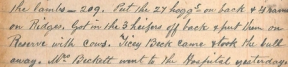 the lambs - 209. Put the 27 hoggs on back & 4 rams
on Ridges. Got in the 3 heifers off back & put them on
Reserve with cows. Vicey Beck came & took the bull
away. Mrs Beckett went to the Hospital yesterday.